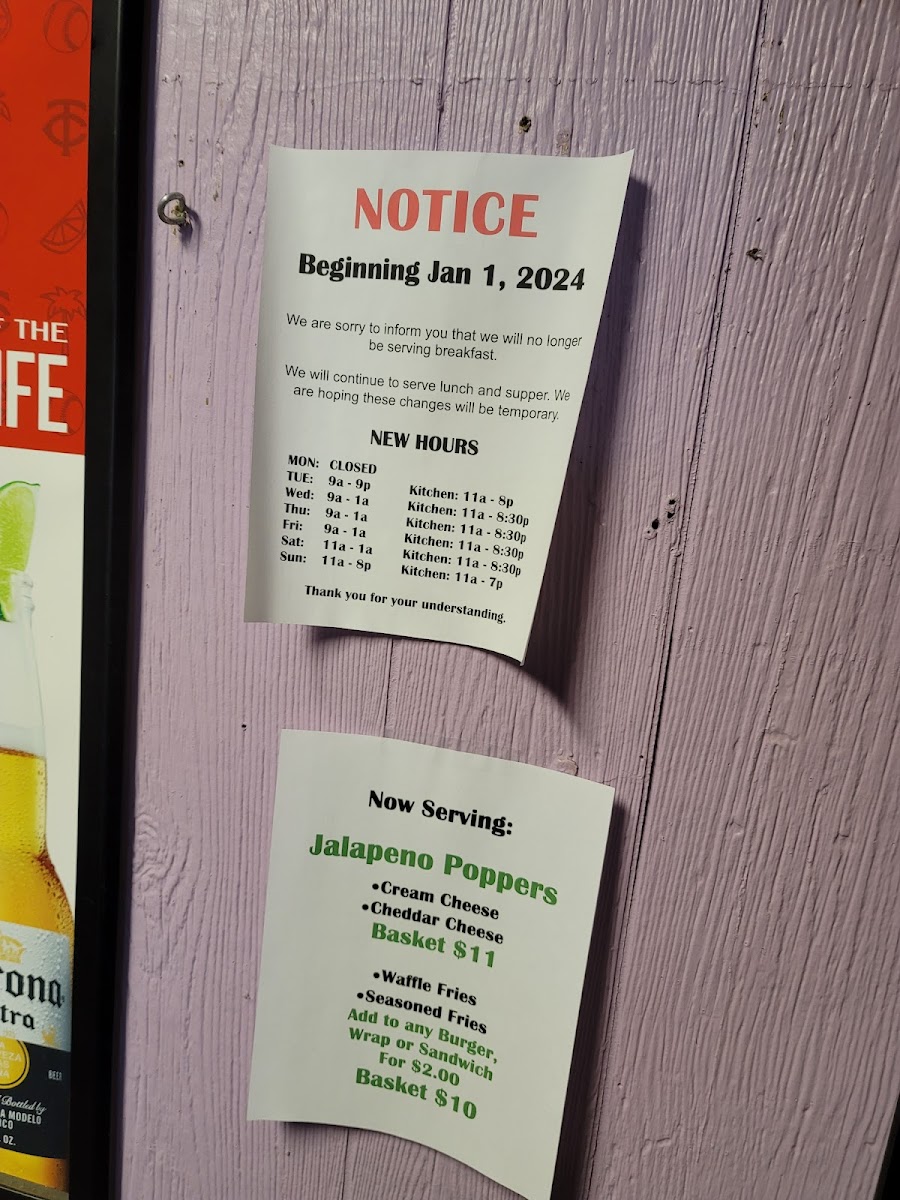 NOTICE
Beginning Jan 1, 2024
We are sorry to inform you that we will no longer
be serving breakfast.
We will continue to serve lunch and supper. We
are hoping these changes will be temporary.
NEW HOURS
MON: CLOSED
TUE: 9a - 9p Kitchen: 11a - 8p
Wed: 9a - 1a Kitchen: 11a - 8:30p
Thu: 9a - 1a Kitchen: 11a - 8:30p
Fri: 9a - 1a Kitchen: 11a - 8:30p
Sat: 11a - 1a Kitchen: 11a - 8:30p
Sun: 11a - 8p Kitchen: 11a - 7p
Thank you for your understanding.
Now Serving:
Jalapeno Poppers
•Cream Cheese
•Cheddar Cheese
Basket $11
•Waffle Fries
•Seasoned Fries
Add to any Burger,
Wrap or Sandwich
For $2.00
Basket $10
THE
IFE
TC
rona
tra
BEER
Bottled by
A MODELO
ICO
OZ.